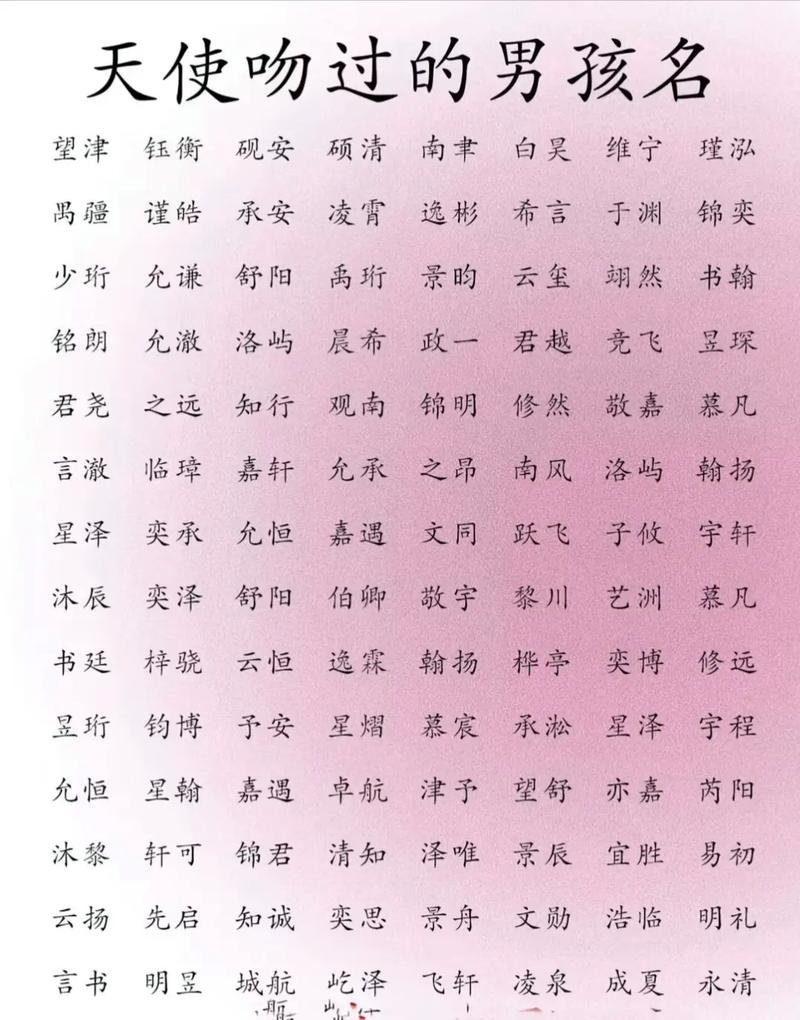 天使吻过的男孩名
望津 钰衡 砚安 硕清 南聿 白昊 维宁 瑾泓
禺疆 谨皓 承安 凌霄 逸彬 希言 于渊 锦奕
少珩 允谦 舒阳 禹珩 景昀 云玺 翊然 书翰
铭朗 允澈 洛屿 晨希 政一 君越 竞飞 昱琛
君尧 之远 知行 观南 锦明 修然 敬嘉 慕凡
言澈 临璋 嘉轩 允承 之昂 南风 洛屿 翰扬
星泽 奕承 允恒 嘉遇 文同 跃飞 子攸 宇轩
沐辰 奕泽 舒阳 伯卿 敬宇 黎川 艺洲 慕凡
书廷 梓骁 云恒 逸霖 翰扬 桦亭 奕博 修远
昱珩 钧博 予安 星熠 慕宸 承淞 星泽 宇程
允恒 星翰 嘉遇 卓航 津予 望舒 亦嘉 芮阳
沐黎 轩可 锦君 清知 泽唯 景辰 宜胜 易初
云扬 先启 知诚 奕思 景舟 文勋 浩临 明礼
言书 明昱 城航 屹泽 飞轩 凌泉 成夏 永清